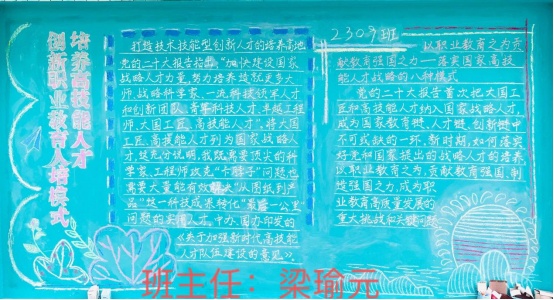 培养高技能人才
创新职业教育人培模式
打造技术技能型创新人才的培养高地
党的二十大报告指出"加快建设国家
战略人才力量,努力培养造就更多大
师、战略科学家、一流科技领军人才
和创新团队、青年科技人才、卓越工程
师、大国工匠、高技能人才"。将大国
工匠、高技能人才列为国家战略人
才,这充分说明,我既需要顶尖的科
学家、工程师攻克"卡脖子"问题也
需要大量能有效解决"从图纸到产
品"这一科技成果转化"最后一公里
问题的实操人才。中办、国办印发的
《关于加强新时代高技能
人才队伍建设的意见》
2309班
以职业教育之为贡
献教育强国之力——落实国家高技
能人才战略的八种模式
党的二十大报告首次把大国工
匠和高技能人才纳入国家战略人才,
成为国家教育链、人才链、创新链中
不可或缺的一环。新时期,如何落实
好党和国家提出的战略人才的培养
以职业教育之为,贡献教育强国、制
造强国之力,成为职
业教育高质量发展的
重大挑战和关键问题
班主任：梁瑜元